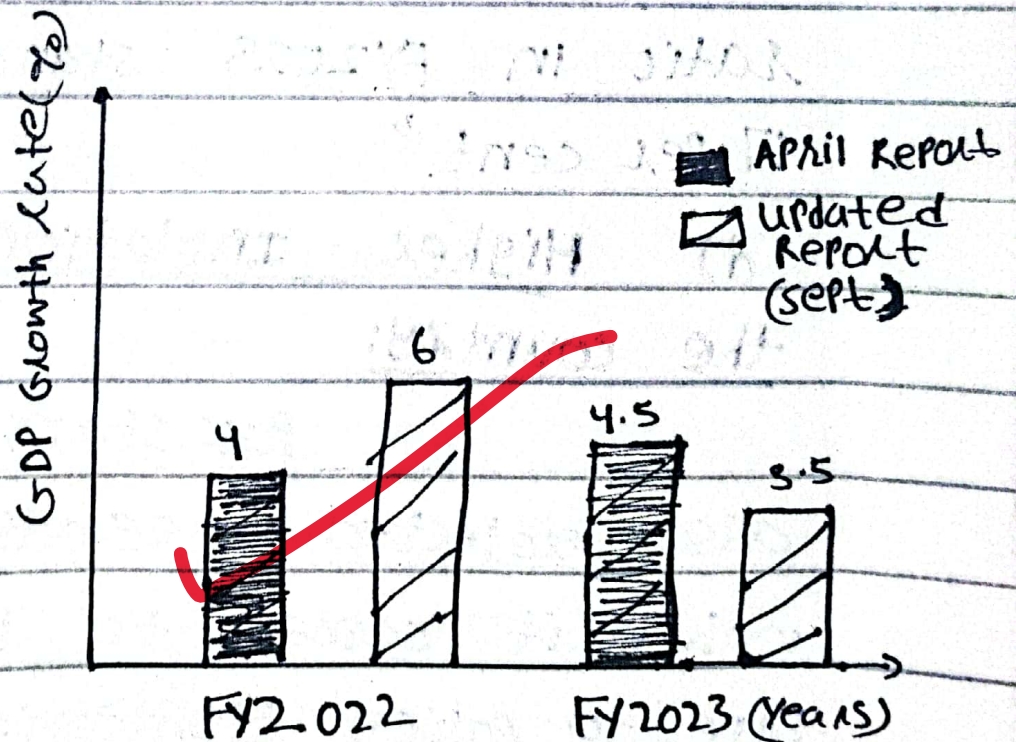 GDP Growth rate (%)
April Report
Updated
Report
(sept)
4
6
4.5
3.5
FY2022
FY2023 (Years)